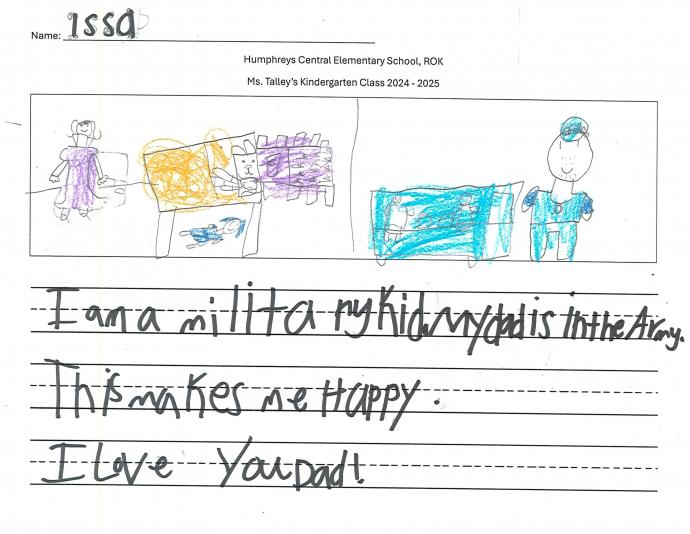 Name: Issa
Humphreys Central Elementary School, ROK
Ms. Talley's Kindergarten Class 2024 - 2025
I am a military Kid. My dad is in the Army.
This makes me Happy.
I Love You Dad!